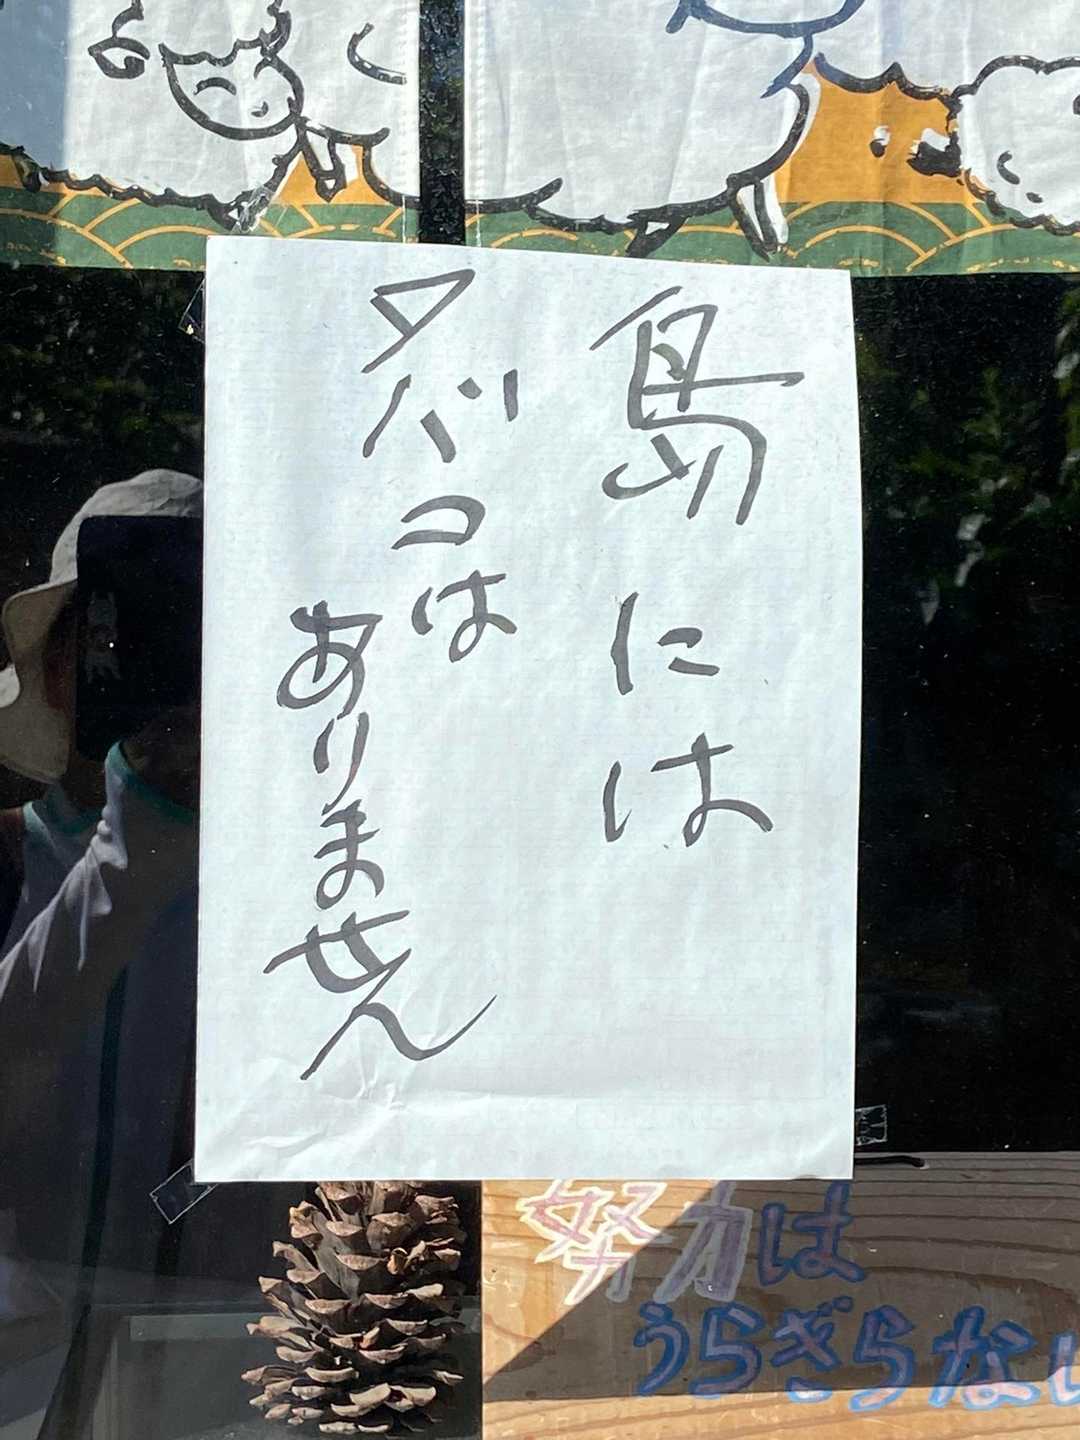 島には
タバコは
ありません
努力は
うらぎらない